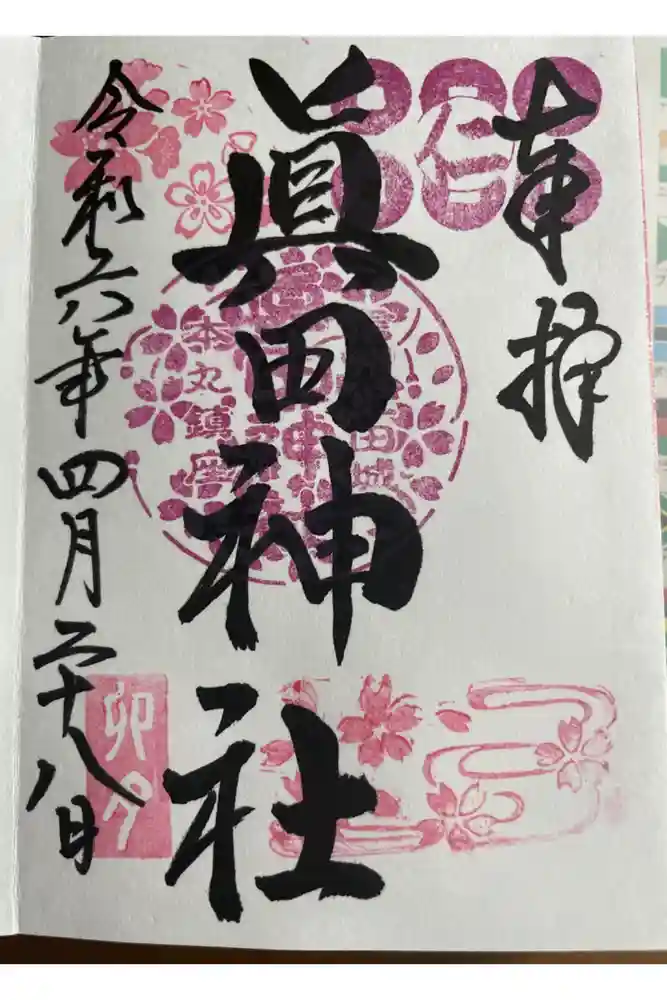 奉拝
眞田神社
本丸鎮座
令和六年四月二十八日
卯月
仁